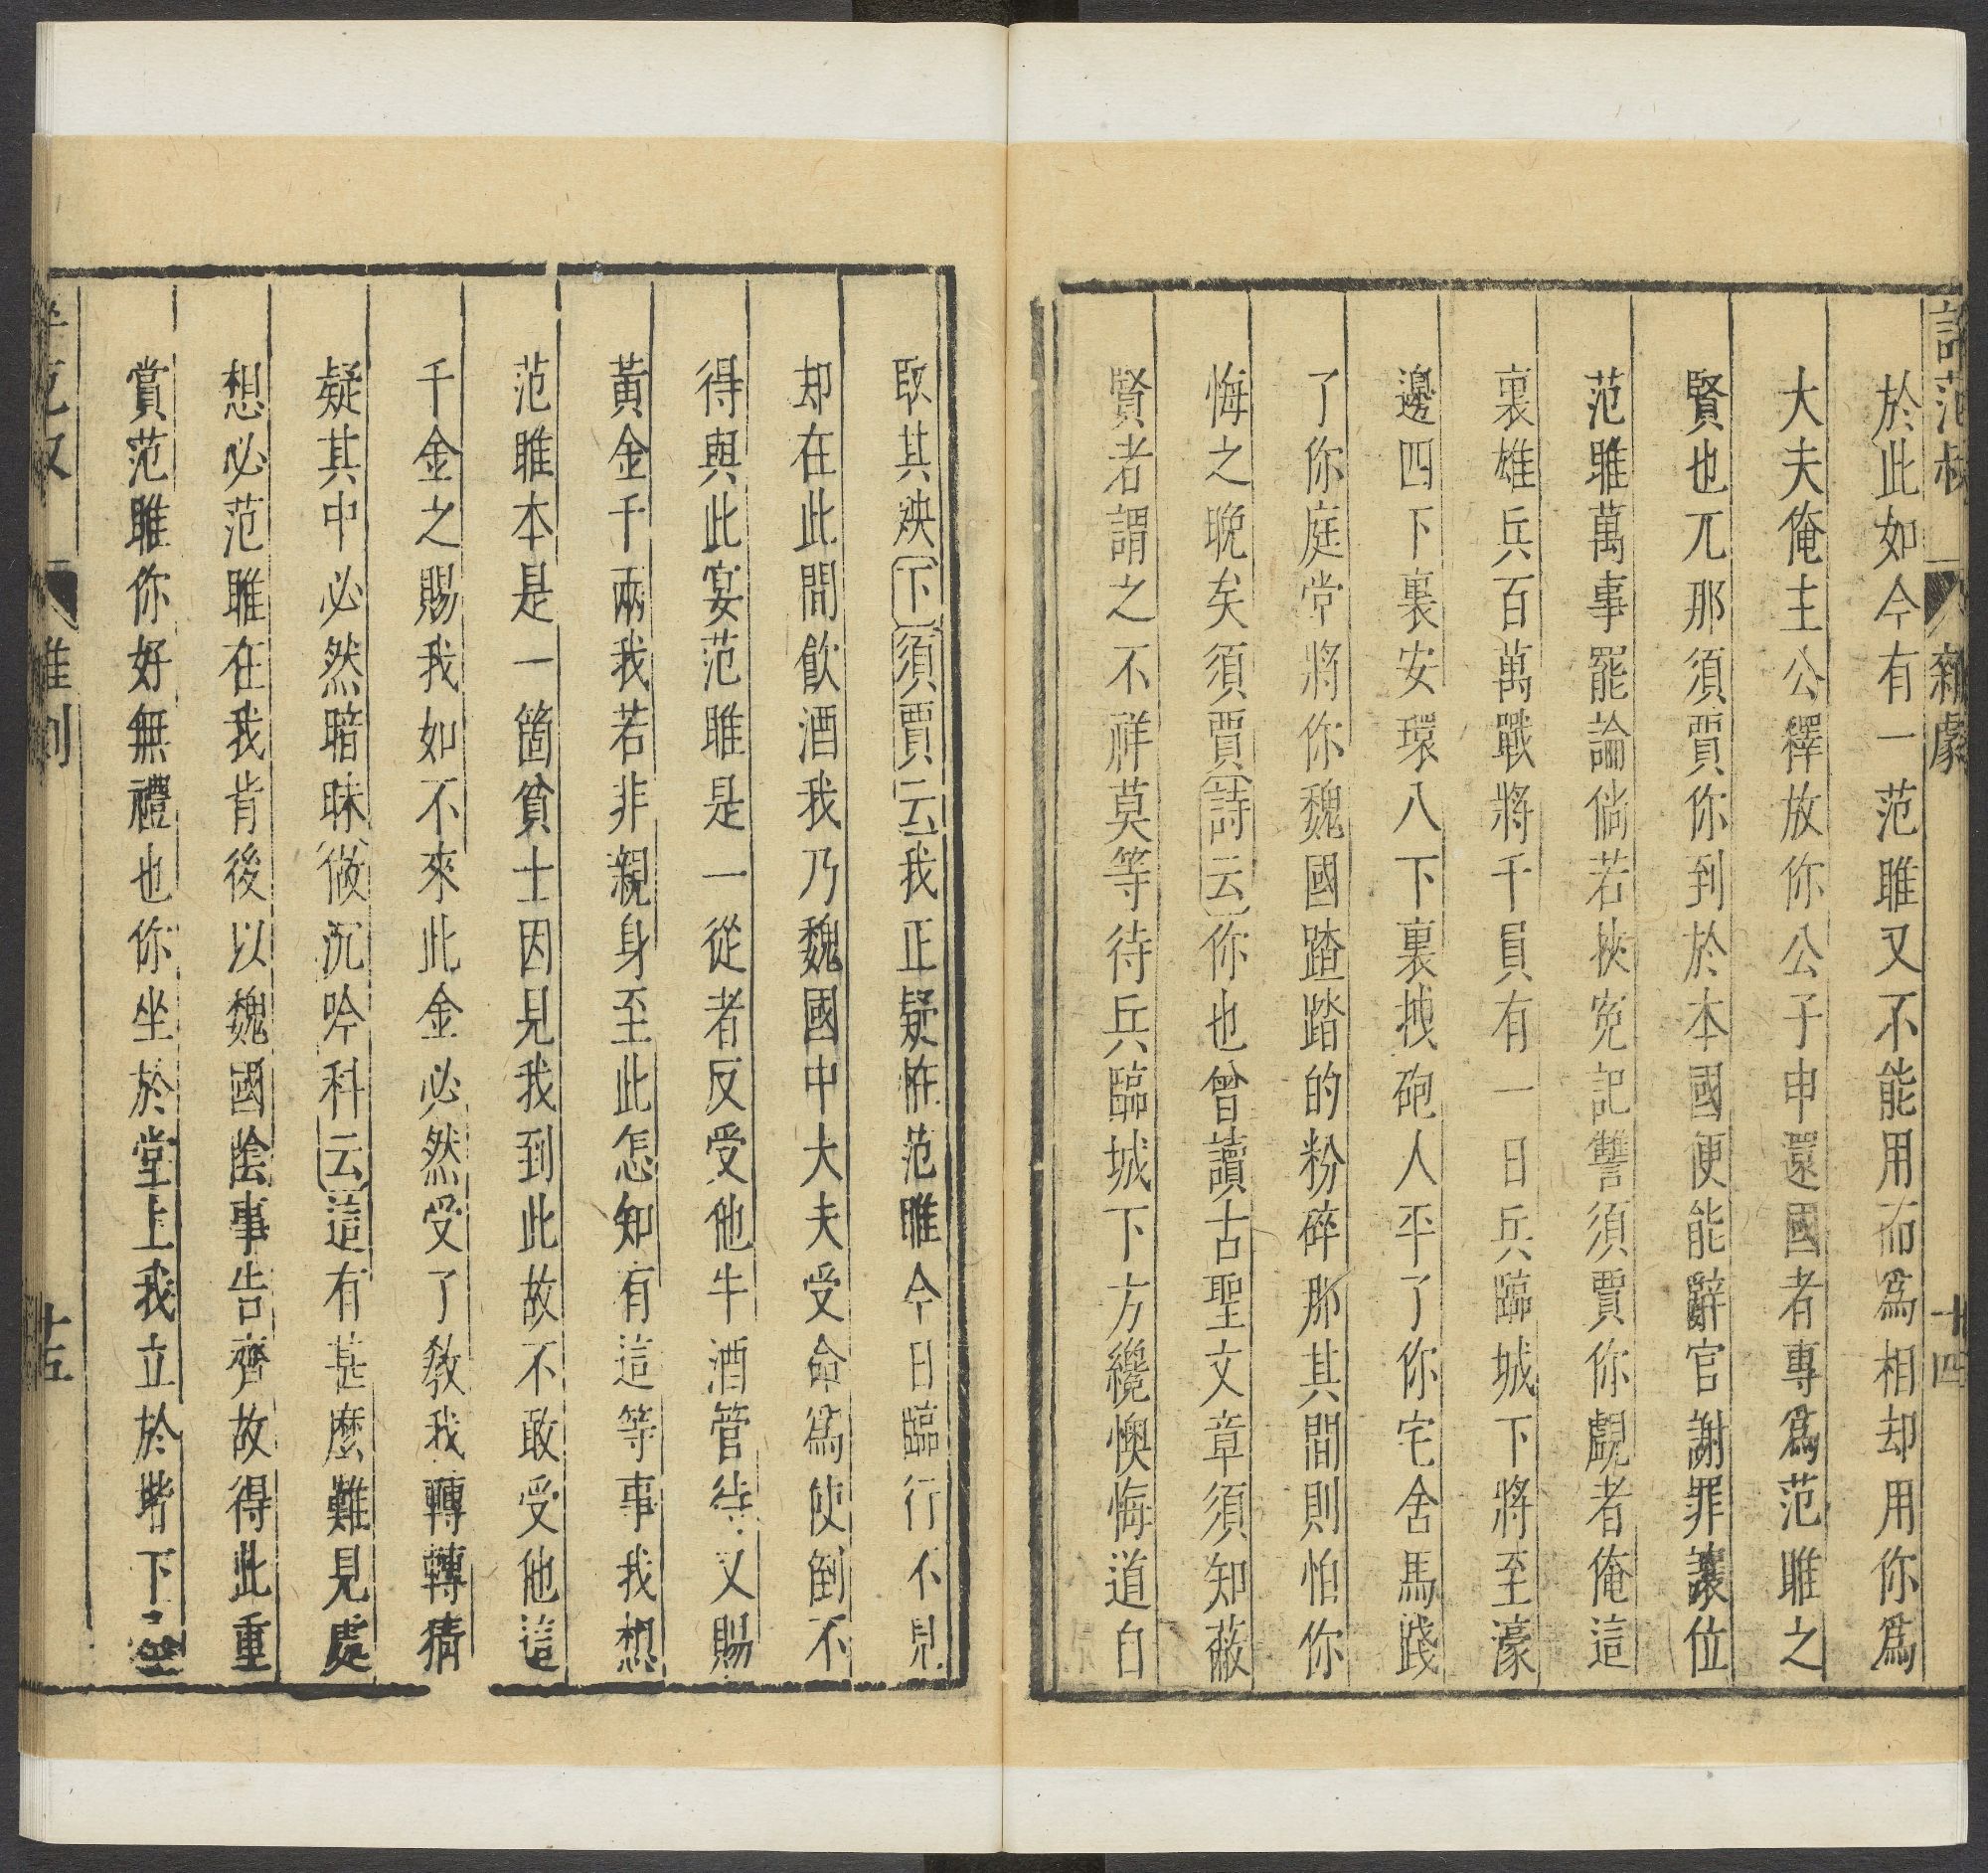 誶范叔 雜劇 十四
於此如今有一范雎又不能用而爲相却用你爲
大夫俺主公釋放你公子申還國者專爲范雎之
賢也兀那須賈你到於本國便能辭官謝罪讓位
范雎萬事罷論倘若挾寃記讐須賈你覷者俺這
裏雄兵百萬戰將千員有一日兵臨城下將至濠
邊四下裏安環八下裏拽砲人平了你宅舍馬踐
了你庭堂將你魏國蹅踏的粉碎那其間則怕你
悔之晚矣須賈詩云你也曾讀古聖文章須知蔽
賢者謂之不祥莫等待兵臨城下方纔懊悔道自
取其殃下須賈云我正疑怪范雎今日臨行不見
却在此間飲酒我乃魏國中大夫受命爲使倒不
得與此宴范雎是一從者反受他牛酒管待又賜
黃金千兩我若非親身至此怎知有這等事我想
范雎本是一箇貧士因見我到此故不敢受他這
千金之賜我如不來此金必然受了敎我轉轉猜
疑其中必然暗昧做沉吟科云這有甚麼難見處
想必范雎在我肯後以魏國陰事告齊故得此重
賞范雎你好無禮也你坐於堂上我立於堦下
范叔 雜劇 十五